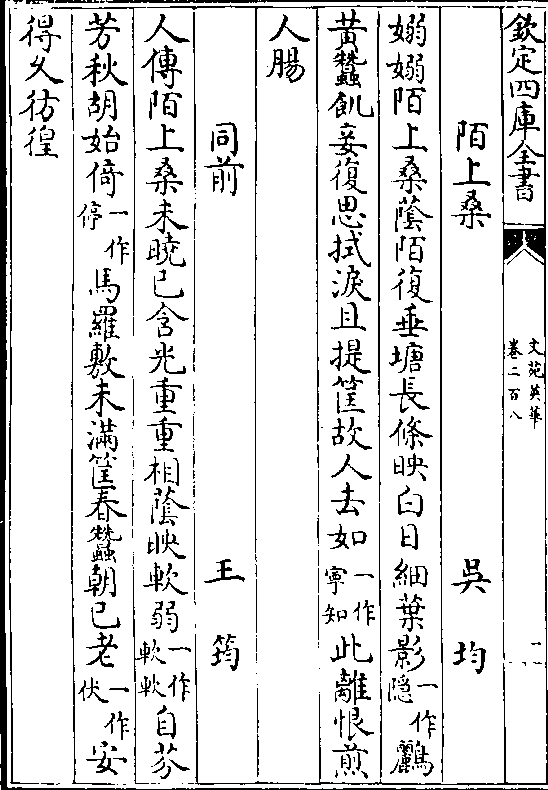 欽定四庫全書
文苑英華
卷二百八
二
陌上桑
吳均
嫋嫋陌上桑蔭陌復垂塘長條映白日細葉影一作隱鸝
黃蠶飢妾復思拭淚且提筐故人去如一作寧知此離恨煎
人腸
同前
王筠
人傳陌上桑未曉已含光重重相蔭映軟弱一作軟軟自芬
芳秋胡始倚一作停馬羅敷未滿筐春蠶朝已老一作伏安
得久彷徨